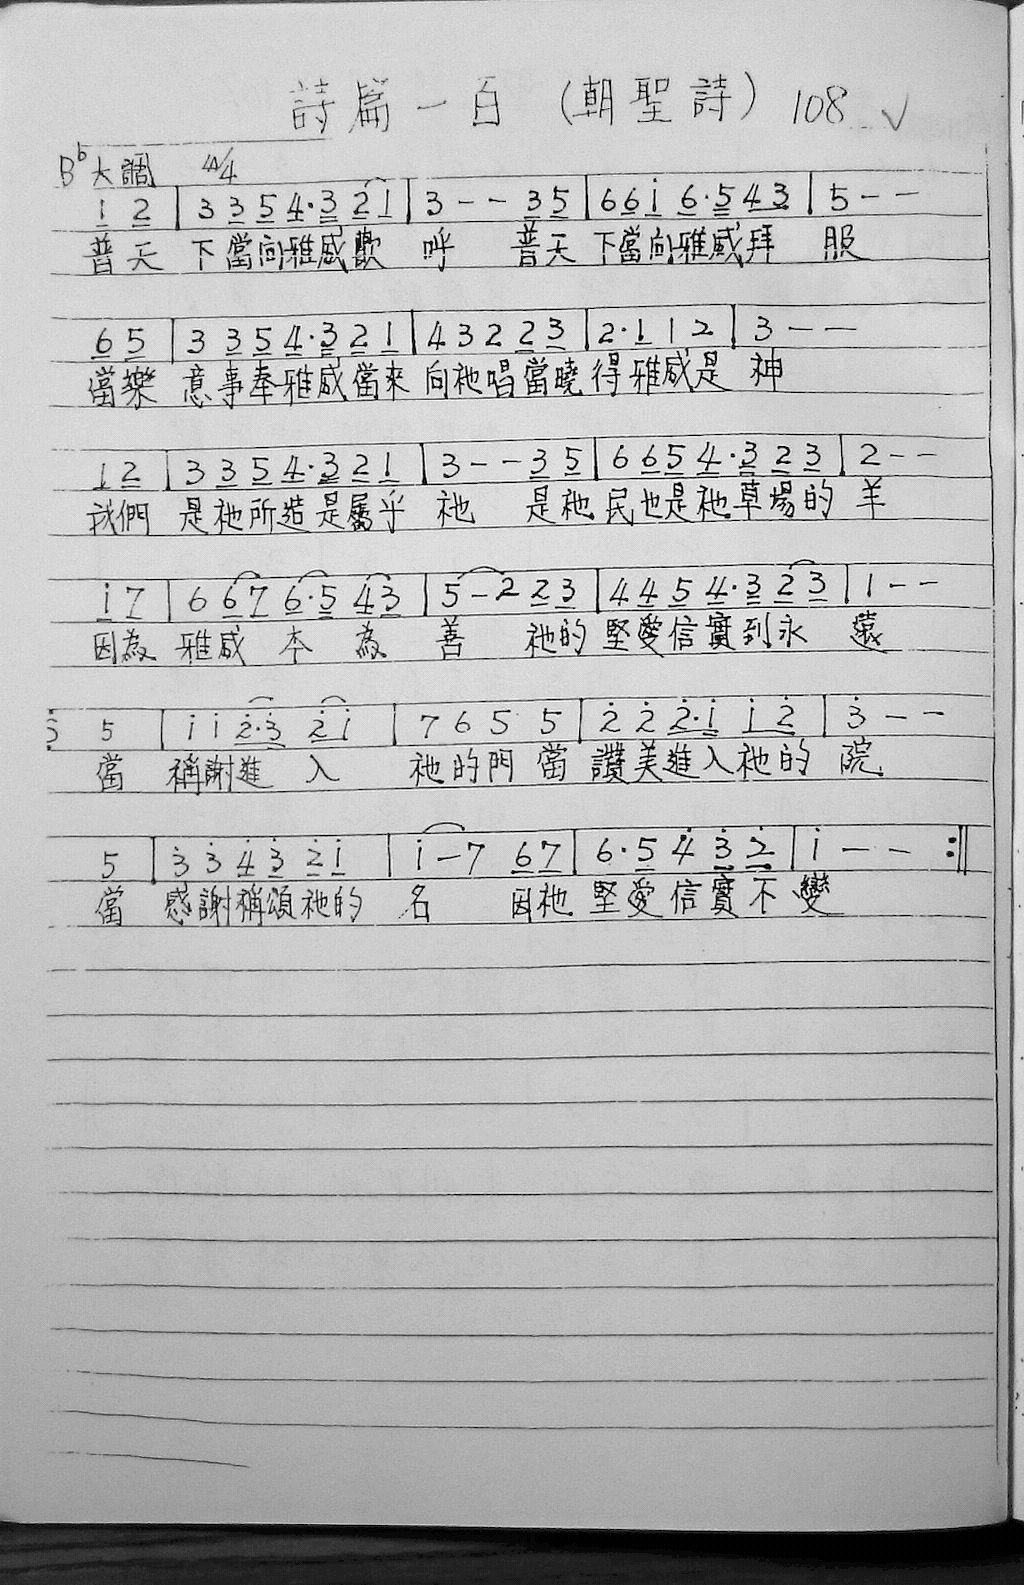 詩篇一百 (朝聖詩) 108 ✓
B♭大調 4/4
1 2 | 3 3 5 4·3 2 1 | 3 - - 3 5 | 6 6 i 6·5 4 3 | 5 - -
普天 下當向雅威歡 呼 普天 下當向雅威拜 服
6 5 | 3 3 5 4·3 2 1 | 4 3 2 2 3 | 2·1 1 2 | 3 - -
當樂 意事奉雅威當來 向祂唱當曉 得雅威是 神
1 2 | 3 3 5 4·3 2 1 | 3 - - 3 5 | 6 6 5 4·3 2 3 | 2 - -
我們 是祂所造是屬乎 祂 是祂 民也是祂草場的 羊
i 7 | 6 6 7 6·5 4 3 | 5 - 2 2 3 | 4 4 5 4·3 2 3 | 1 - -
因為 雅威 本 為 善 祂的 堅愛信實到永 遠
5 | i i 2̇·3̇ 2̇ i | 7 6 5 5 | 2̇ 2̇ 2̇·i i 2̇ | 3̇ - -
當 稱謝進 入 祂的門 當 讚美進入祂的 院
5 | 3̇ 3̇ 4̇ 3̇ 2̇ i | i - 7 6 7 | 6·5 4̇ 3̇ 2̇ | i - - :||
當 感謝稱頌祂的 名 因祂 堅愛信實不 變